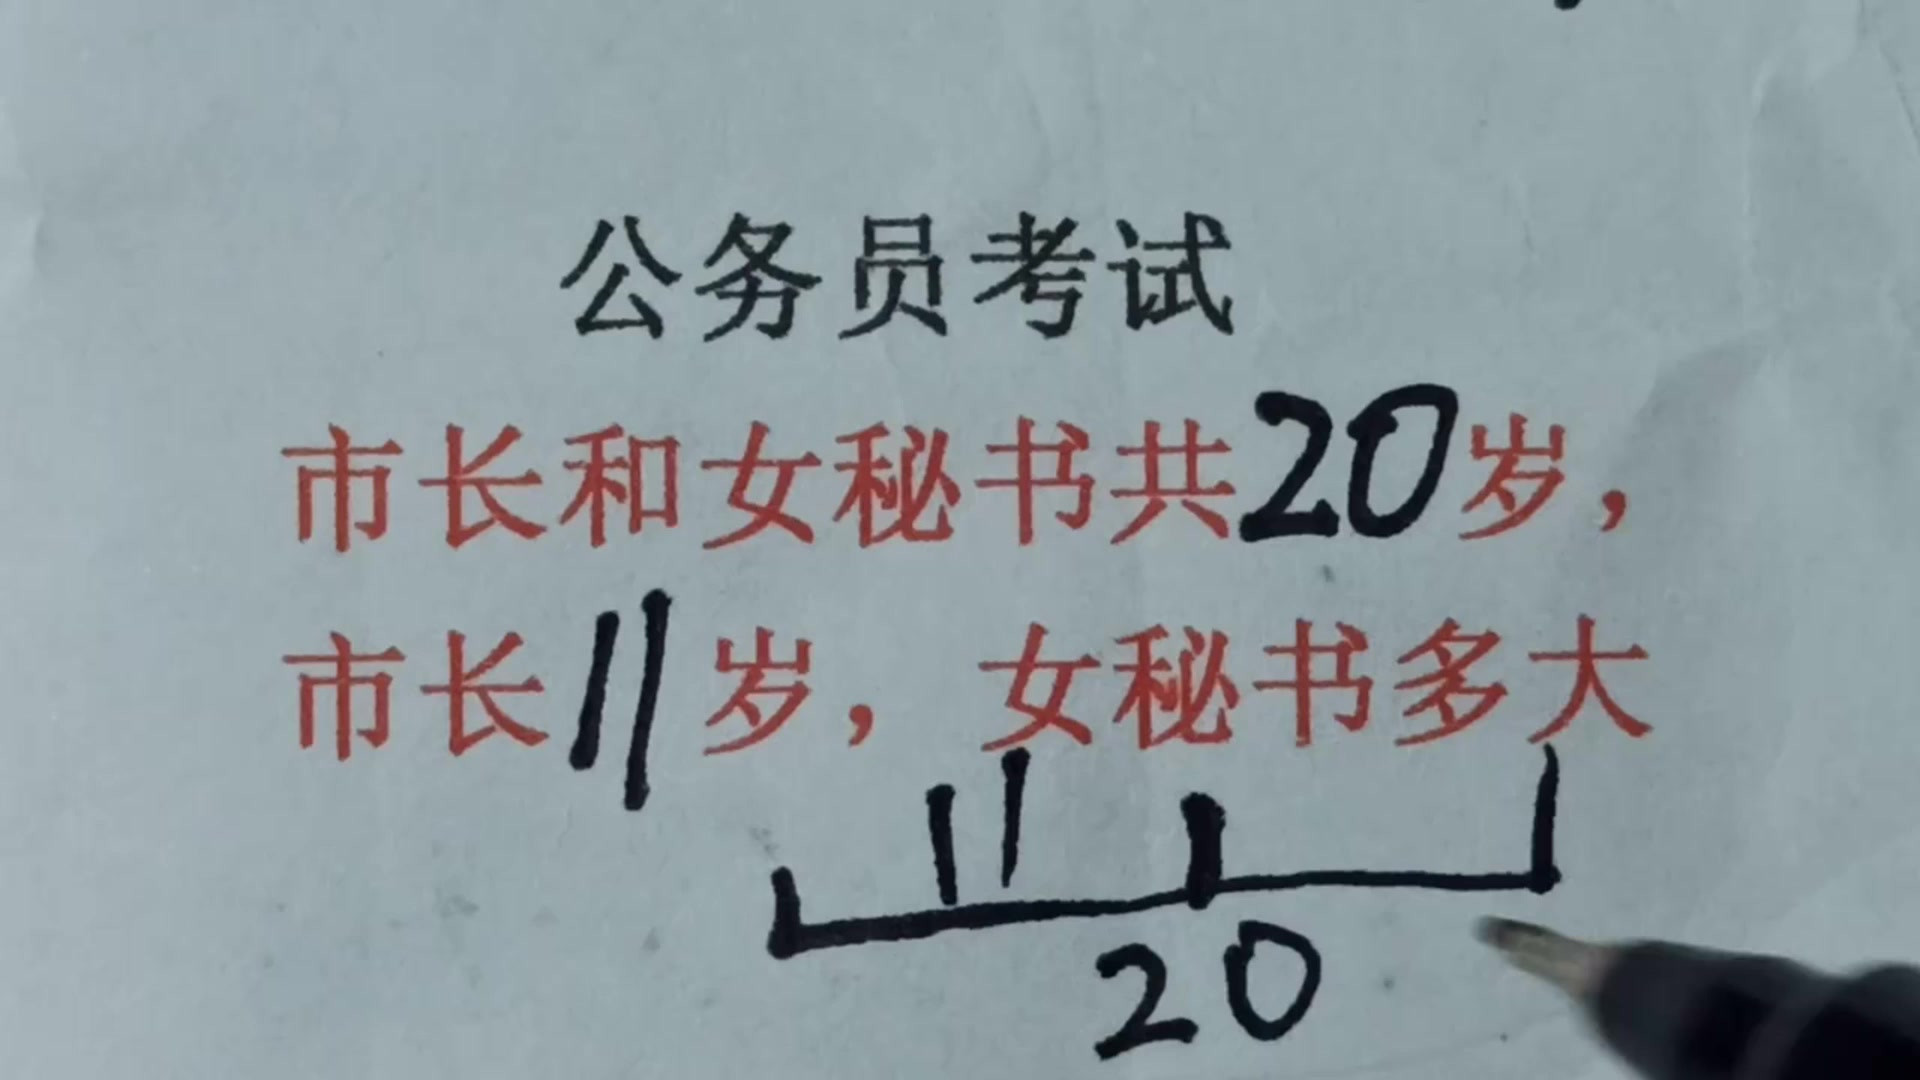 公务员考试
市长和女秘书共20岁，
市长11岁，女秘书多大
11
20